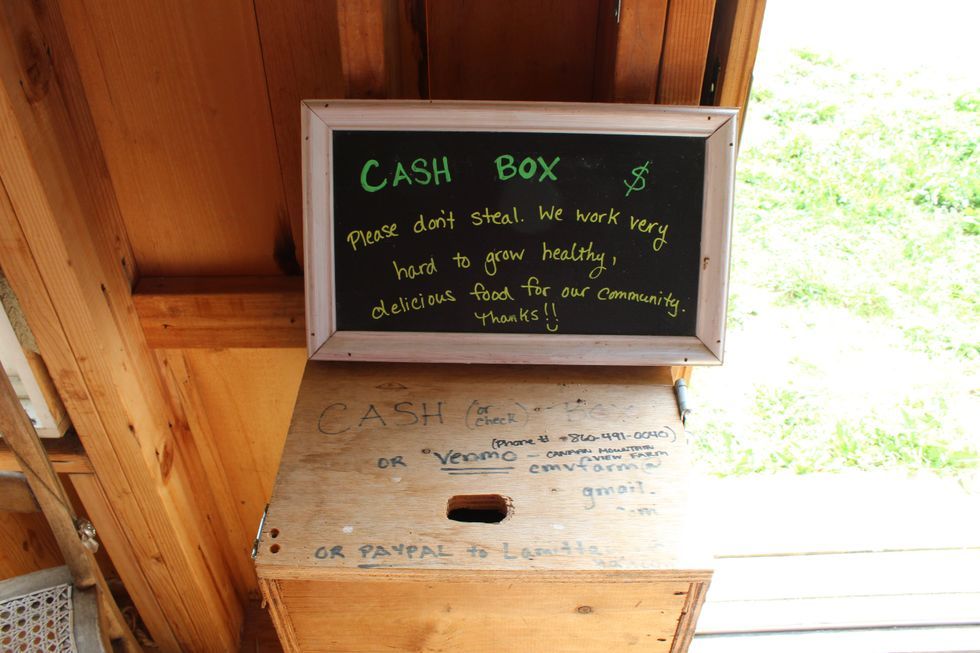 CASH BOX $
Please don't steal. We work very
hard to grow healthy,
delicious food for our community.
Thanks!!
CASH (or check) Box
(Phone # 860-491-0040)
OR Venmo - CANAAN MOUNTAIN VIEW FARM
cmvfarm@
gmail.
OR PAYPAL to